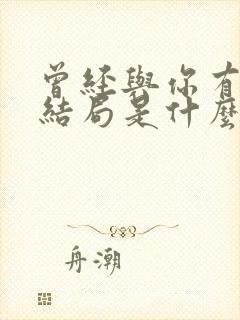 曾經與你有
結局是什麼
舟潮